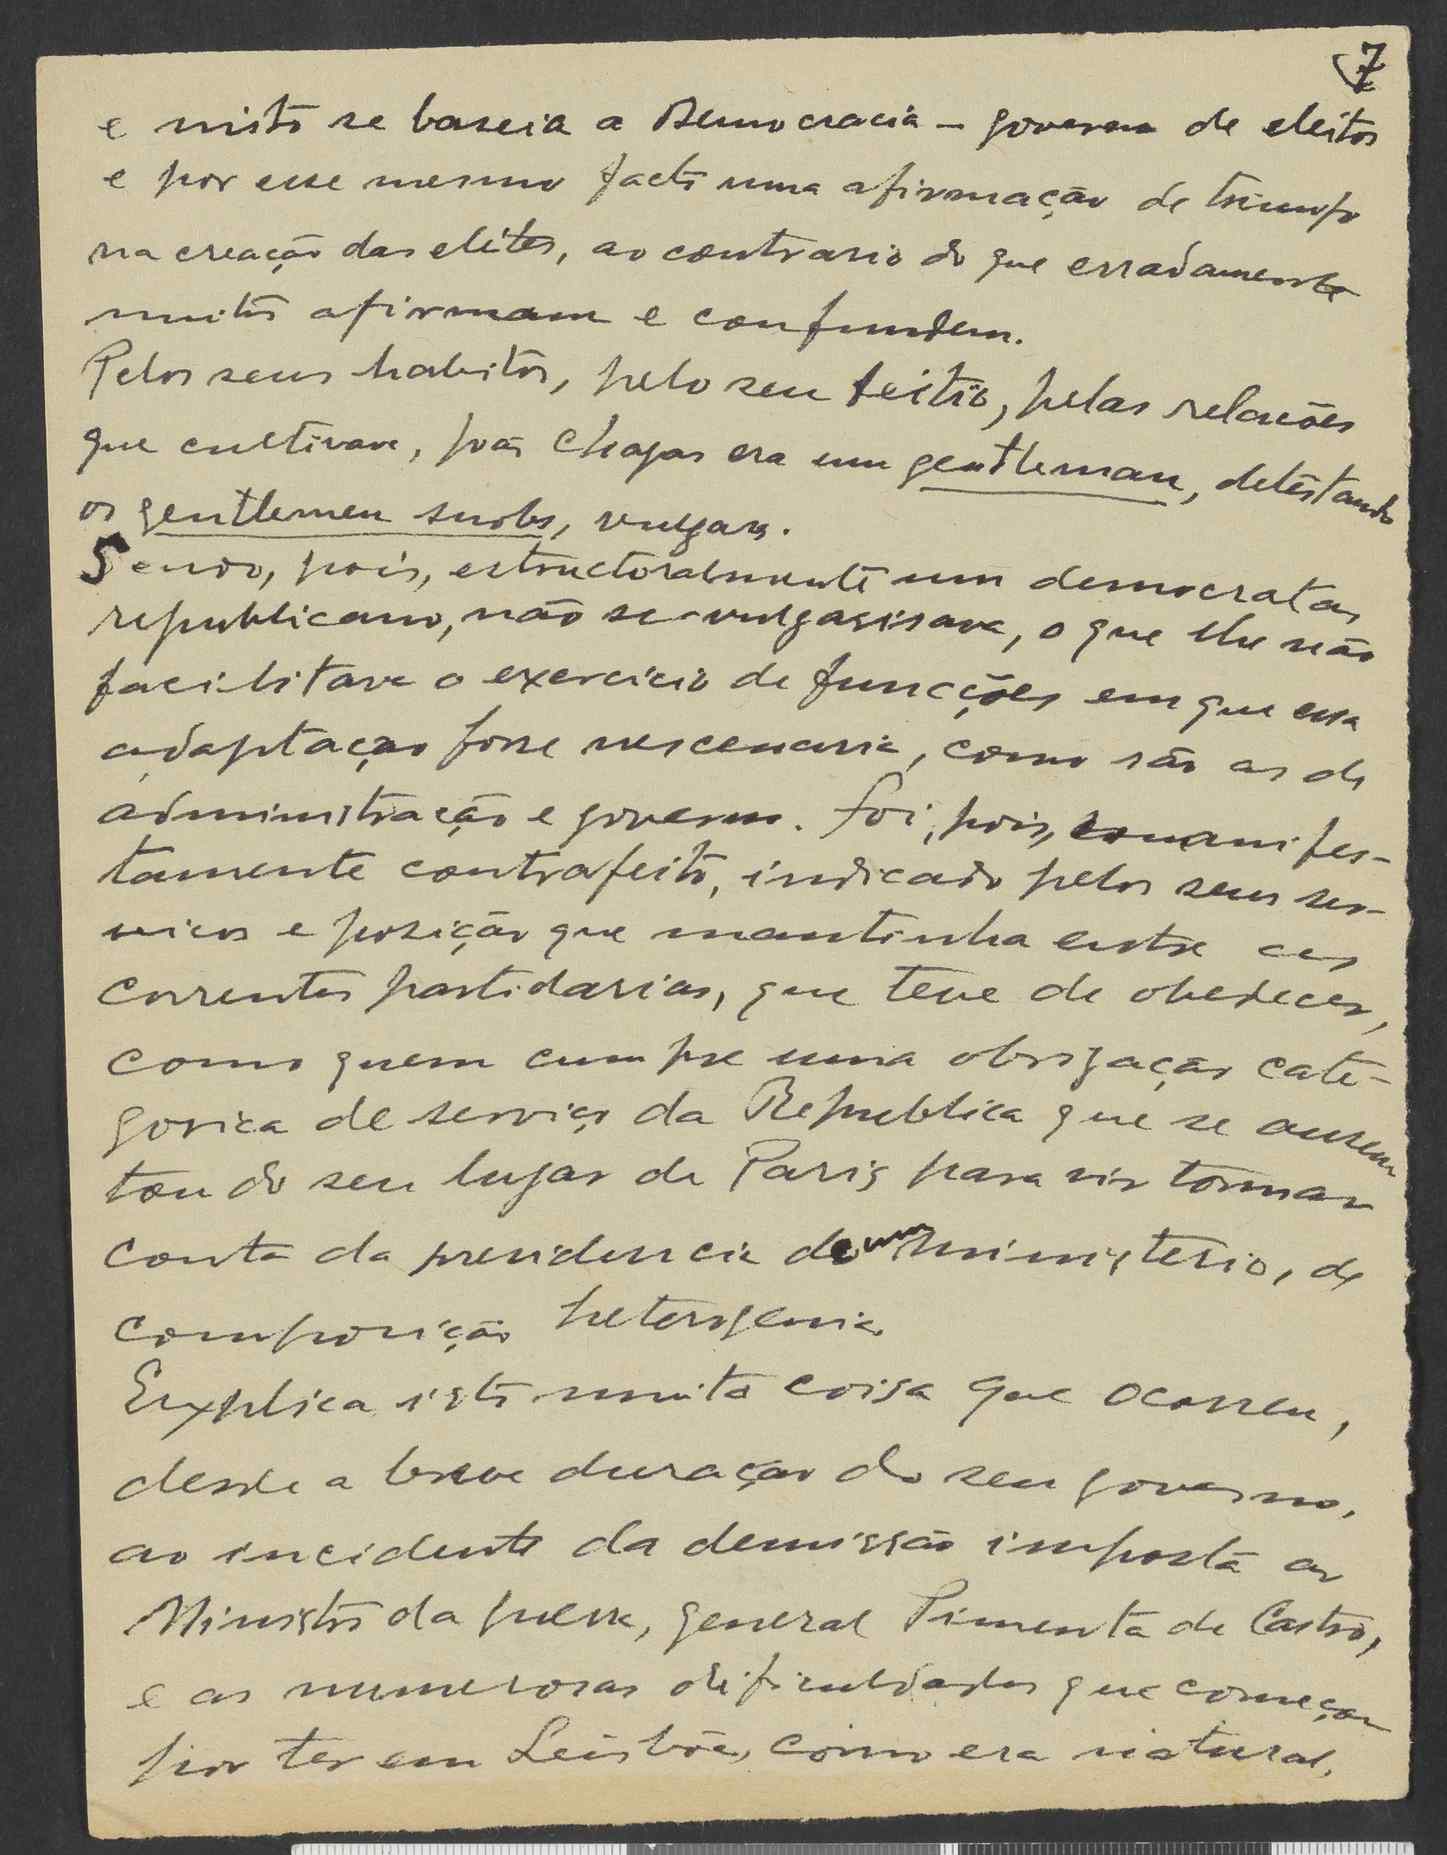 7
e nisto se baseia a Democracia - governo de eleitos
e por esse mesmo facto uma afirmação de triunfo
na creação das elites, ao contrario do que erradamente
muitos afirmam e confundem.
Pelos seus habitos, pelo seu feitio, pelas relações
que cultivava, João Chagas era um gentleman, detestando
os gentlemen snobs, vulgares.
Sendo, pois, estructoralmente um democrata,
republicano, não se vulgarisava, o que lhe não
facilitava o exercicio de funcções em que essa
adaptação fosse nescessaria, como são as de
administração e governo. Foi, pois, manifes-
tamente contrafeito, indicado pelos seus ser-
viços e posição que mantinha entre as
correntes partidarias, que teve de obedecer,
como quem cumpre uma obrigação cate-
gorica de serviço da Republica que se ausen
tou do seu lugar de Paris para vir tomar
conta da presidencia de um ministerio, de
composição heterogenia.
Explica isto muita coisa que ocorreu,
desde a breve duração do seu governo,
ao incidente da demissão imposta ao
Ministro da guerra, general Pimenta de Castro,
e as numerosas dificuldades que começou
por ter em Leisbôa, como era natural.